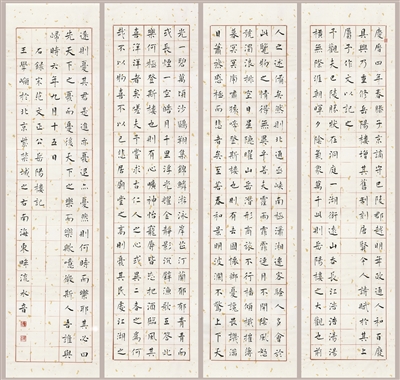 慶曆四年春滕子京謫守巴陵郡越明年政通人和百廢
具興乃重修岳陽樓增其舊制刻唐賢今人詩賦於其上
屬予作文以記之
予觀夫巴陵勝狀在洞庭一湖銜遠山吞長江浩浩湯湯
橫無際涯朝暉夕陰氣象萬千此則岳陽樓之大觀也前
人之述備矣然則北通巫峽南極瀟湘遷客騷人多會於
此覽物之情得無異乎若夫霪雨霏霏連月不開陰風怒
號濁浪排空日星隱曜山岳潛形商旅不行檣傾楫摧薄
暮冥冥虎嘯猿啼登斯樓也則有去國懷鄉憂讒畏譏滿
目蕭然感極而悲者矣至若春和景明波瀾不驚上下天
光一碧萬頃沙鷗翔集錦鱗游泳岸芷汀蘭郁郁青青而
或長煙一空皓月千里浮光耀金靜影沉璧漁歌互答此
樂何極登斯樓也則有心曠神怡寵辱皆忘把酒臨風其
喜洋洋者矣嗟夫予嘗求古仁人之心或異二者之為何
哉不以物喜不以己悲居廟堂之高則憂其民處江湖之
遠則憂其君是進亦憂退亦憂然則何時而樂耶其必曰
先天下之憂而憂後天下之樂而樂歟噫微斯人吾誰與
歸時六年九月十五日
右錄宋范文正公岳陽樓記
王學嶺於北京紫禁城之古南海東畔流水音